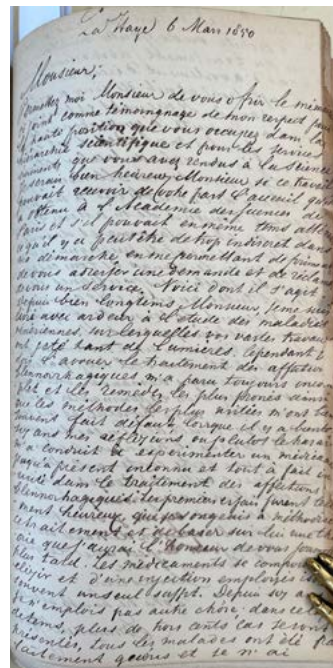 La Haye 6 Mars 1850
Monsieur,
Permettez moi Monsieur de vous offrir le mémoire
ci joint comme témoignage de mon respect pour
la haute position que vous occupez dans la
hiérarchie scientifique et pour les services
que vous avez rendus à la science
serais bien heureux Monsieur si ce travail
pouvait recevoir de votre part l'accueil qu'il
a obtenu à l'Académie des sciences de
Paris et s'il pouvait en même tems
ce qu'il y a peut être de trop indiscret dans
ma démarche, en me permettant de
vous adresser une demande et de réclamer
de vous un service. Voici dont il s'agit.
Depuis bien longtems, Monsieur, je me suis
livré avec ardeur à l'étude des maladies
vénériennes, sur lesquelles vos vastes travaux
ont jeté tant de lumières. Cependant je
dois l'avouer le traitement des affections
blennorrhagiques m'a paru toujours
et les remèdes les plus pronés
que les méthodes les plus usitées m'ont
souvent fait défaut, lorsque il y a bientôt
six ans mes réflexions ou plutôt le hasard
m'a conduit à expérimenter un médicament
jusqu'à présent inconnu et tout à fait
dans le traitement des affections
blennorrhagiques. Les premiers essais furent
heureux que je songeais à méthodiser
ce traitement et de baser sur lui une
que j'aurai l'honneur de vous
plus tard. Les médicaments se composent
élixir et d'une injection employés
souvent un seul suffit. Depuis six ans
je n'emplois pas autre chose. dans cet
de tems, plus de trois cents cas se sont
présentés, tous les malades ont été
faitement guéris et je n'ai